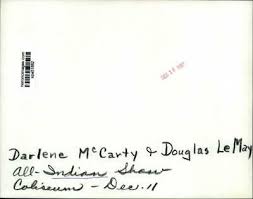 Darlene McCarty & Douglas LeMay
All-Indian Show
Coliseum - Dec. 11